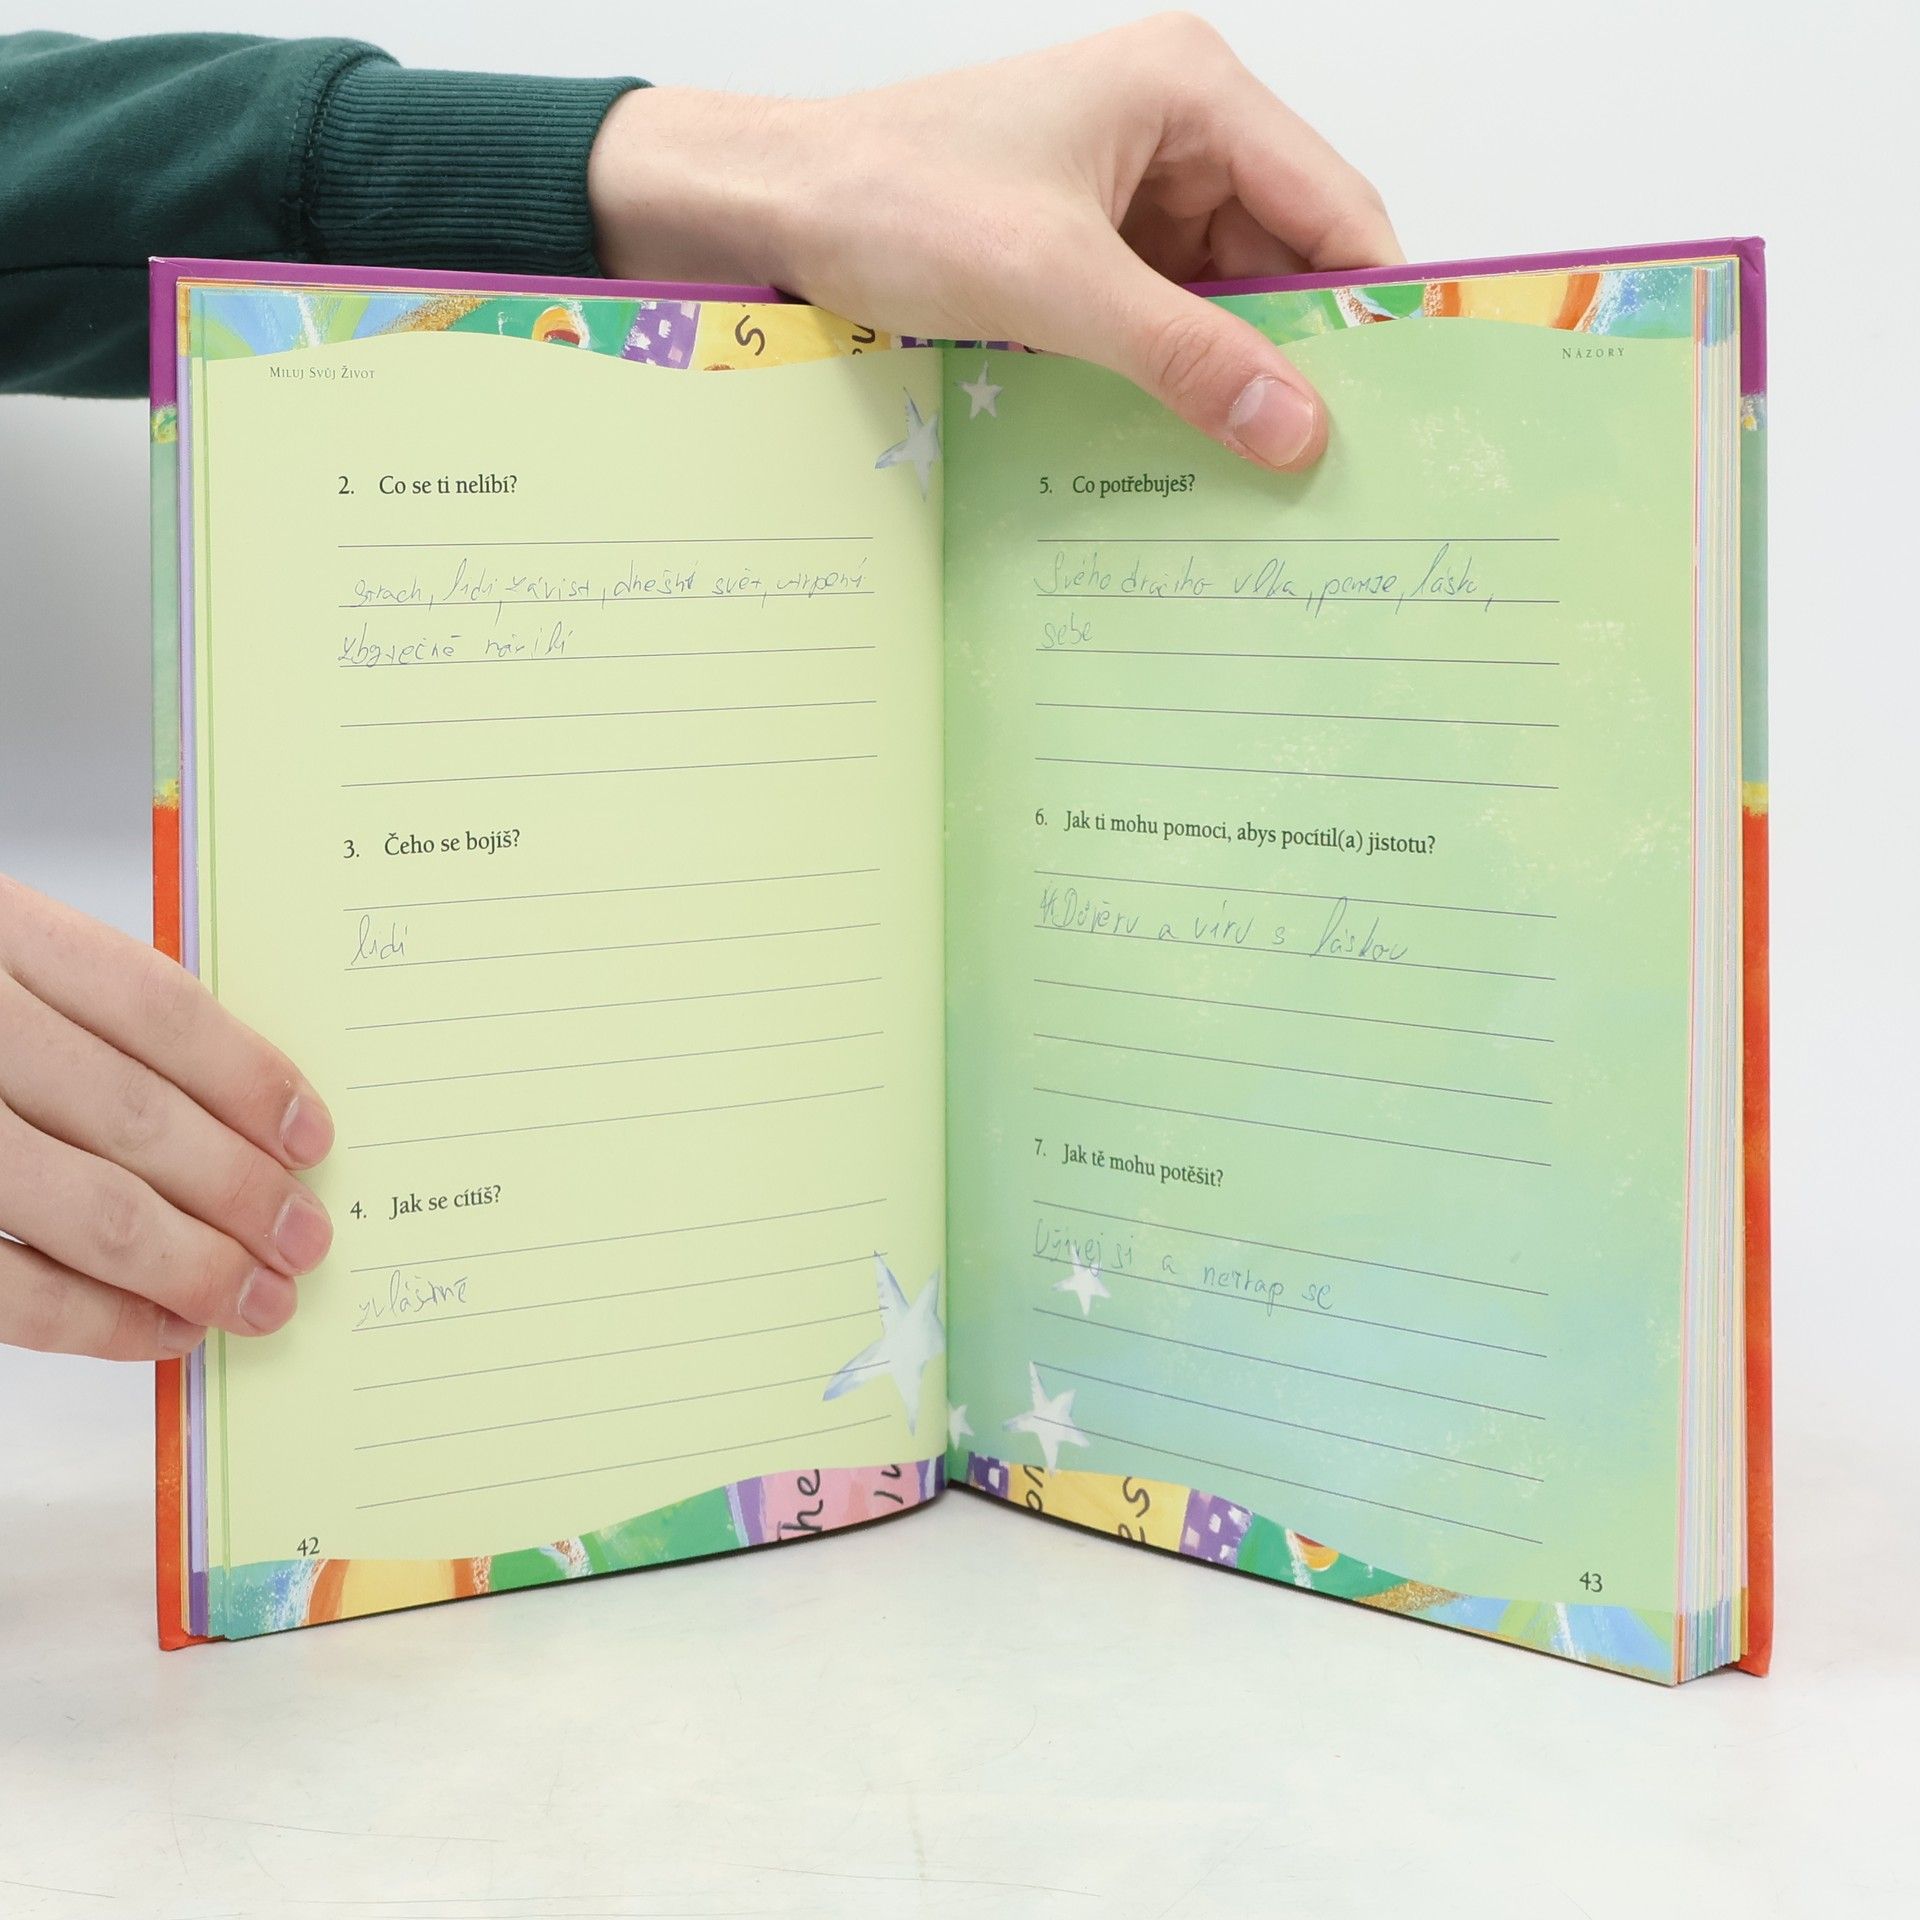 Miluj Svůj Život
2. Co se ti nelíbí?
strach, lidi, závist, dnešní svět, utrpení
zbytečné
3. Čeho se bojíš?
lidí
4. Jak se cítíš?
zvláštně
42
Názory
5. Co potřebuješ?
Svého dračího vlka, peníze, lásku,
sebe
6. Jak ti mohu pomoci, abys pocítil(a) jistotu?
Důvěru a víru s láskou
7. Jak tě mohu potěšit?
Užívej si a netrap se
43